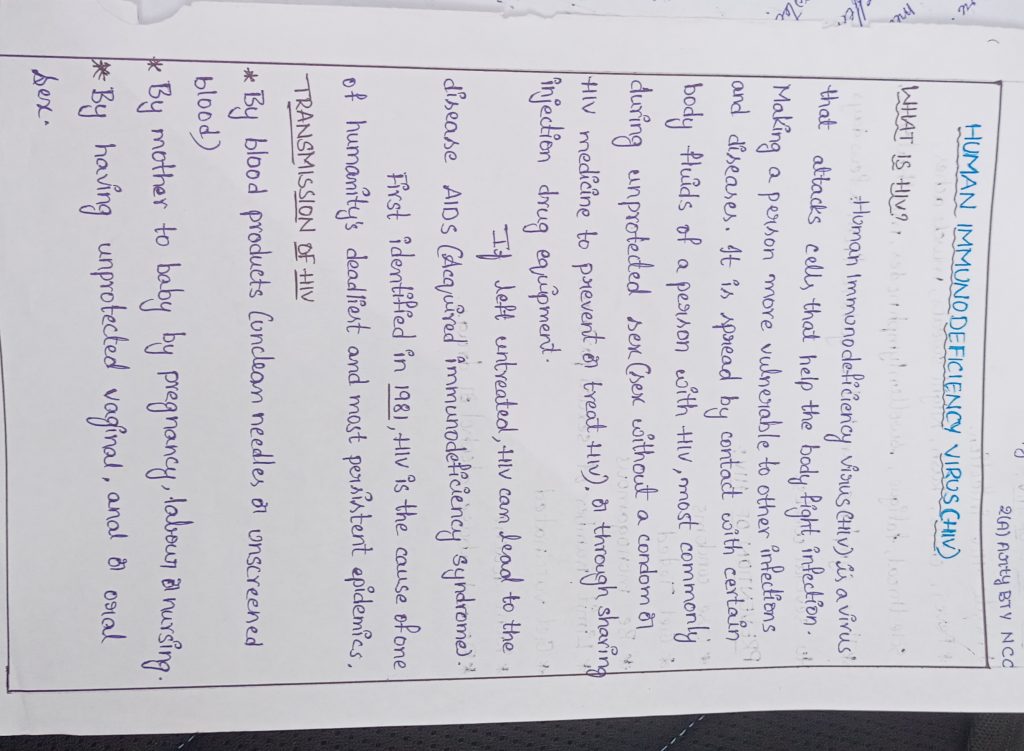 2(A) Aorty BTY NCC
HUMAN IMMUNODEFICIENCY VIRUS (HIV)
WHAT IS HIV?
Human immunodeficiency virus (HIV) is a virus
that attacks cells that help the body fight infection.
Making a person more vulnerable to other infections
and diseases. It is spread by contact with certain
body fluids of a person with HIV, most commonly
during unprotected sex (sex without a condom or
HIV medicine to prevent or treat HIV). or through sharing
injection drug equipment.
If left untreated, HIV can lead to the
disease AIDS (Acquired immunodeficiency syndrome).
First identified in 1981, HIV is the cause of one
of humanity's deadliest and most persistent epidemics.
TRANSMISSION OF HIV
* By blood products (unclean needles or unscreened
blood)
* By mother to baby by pregnancy, labour or nursing.
* By having unprotected vaginal, and or oral
sex.